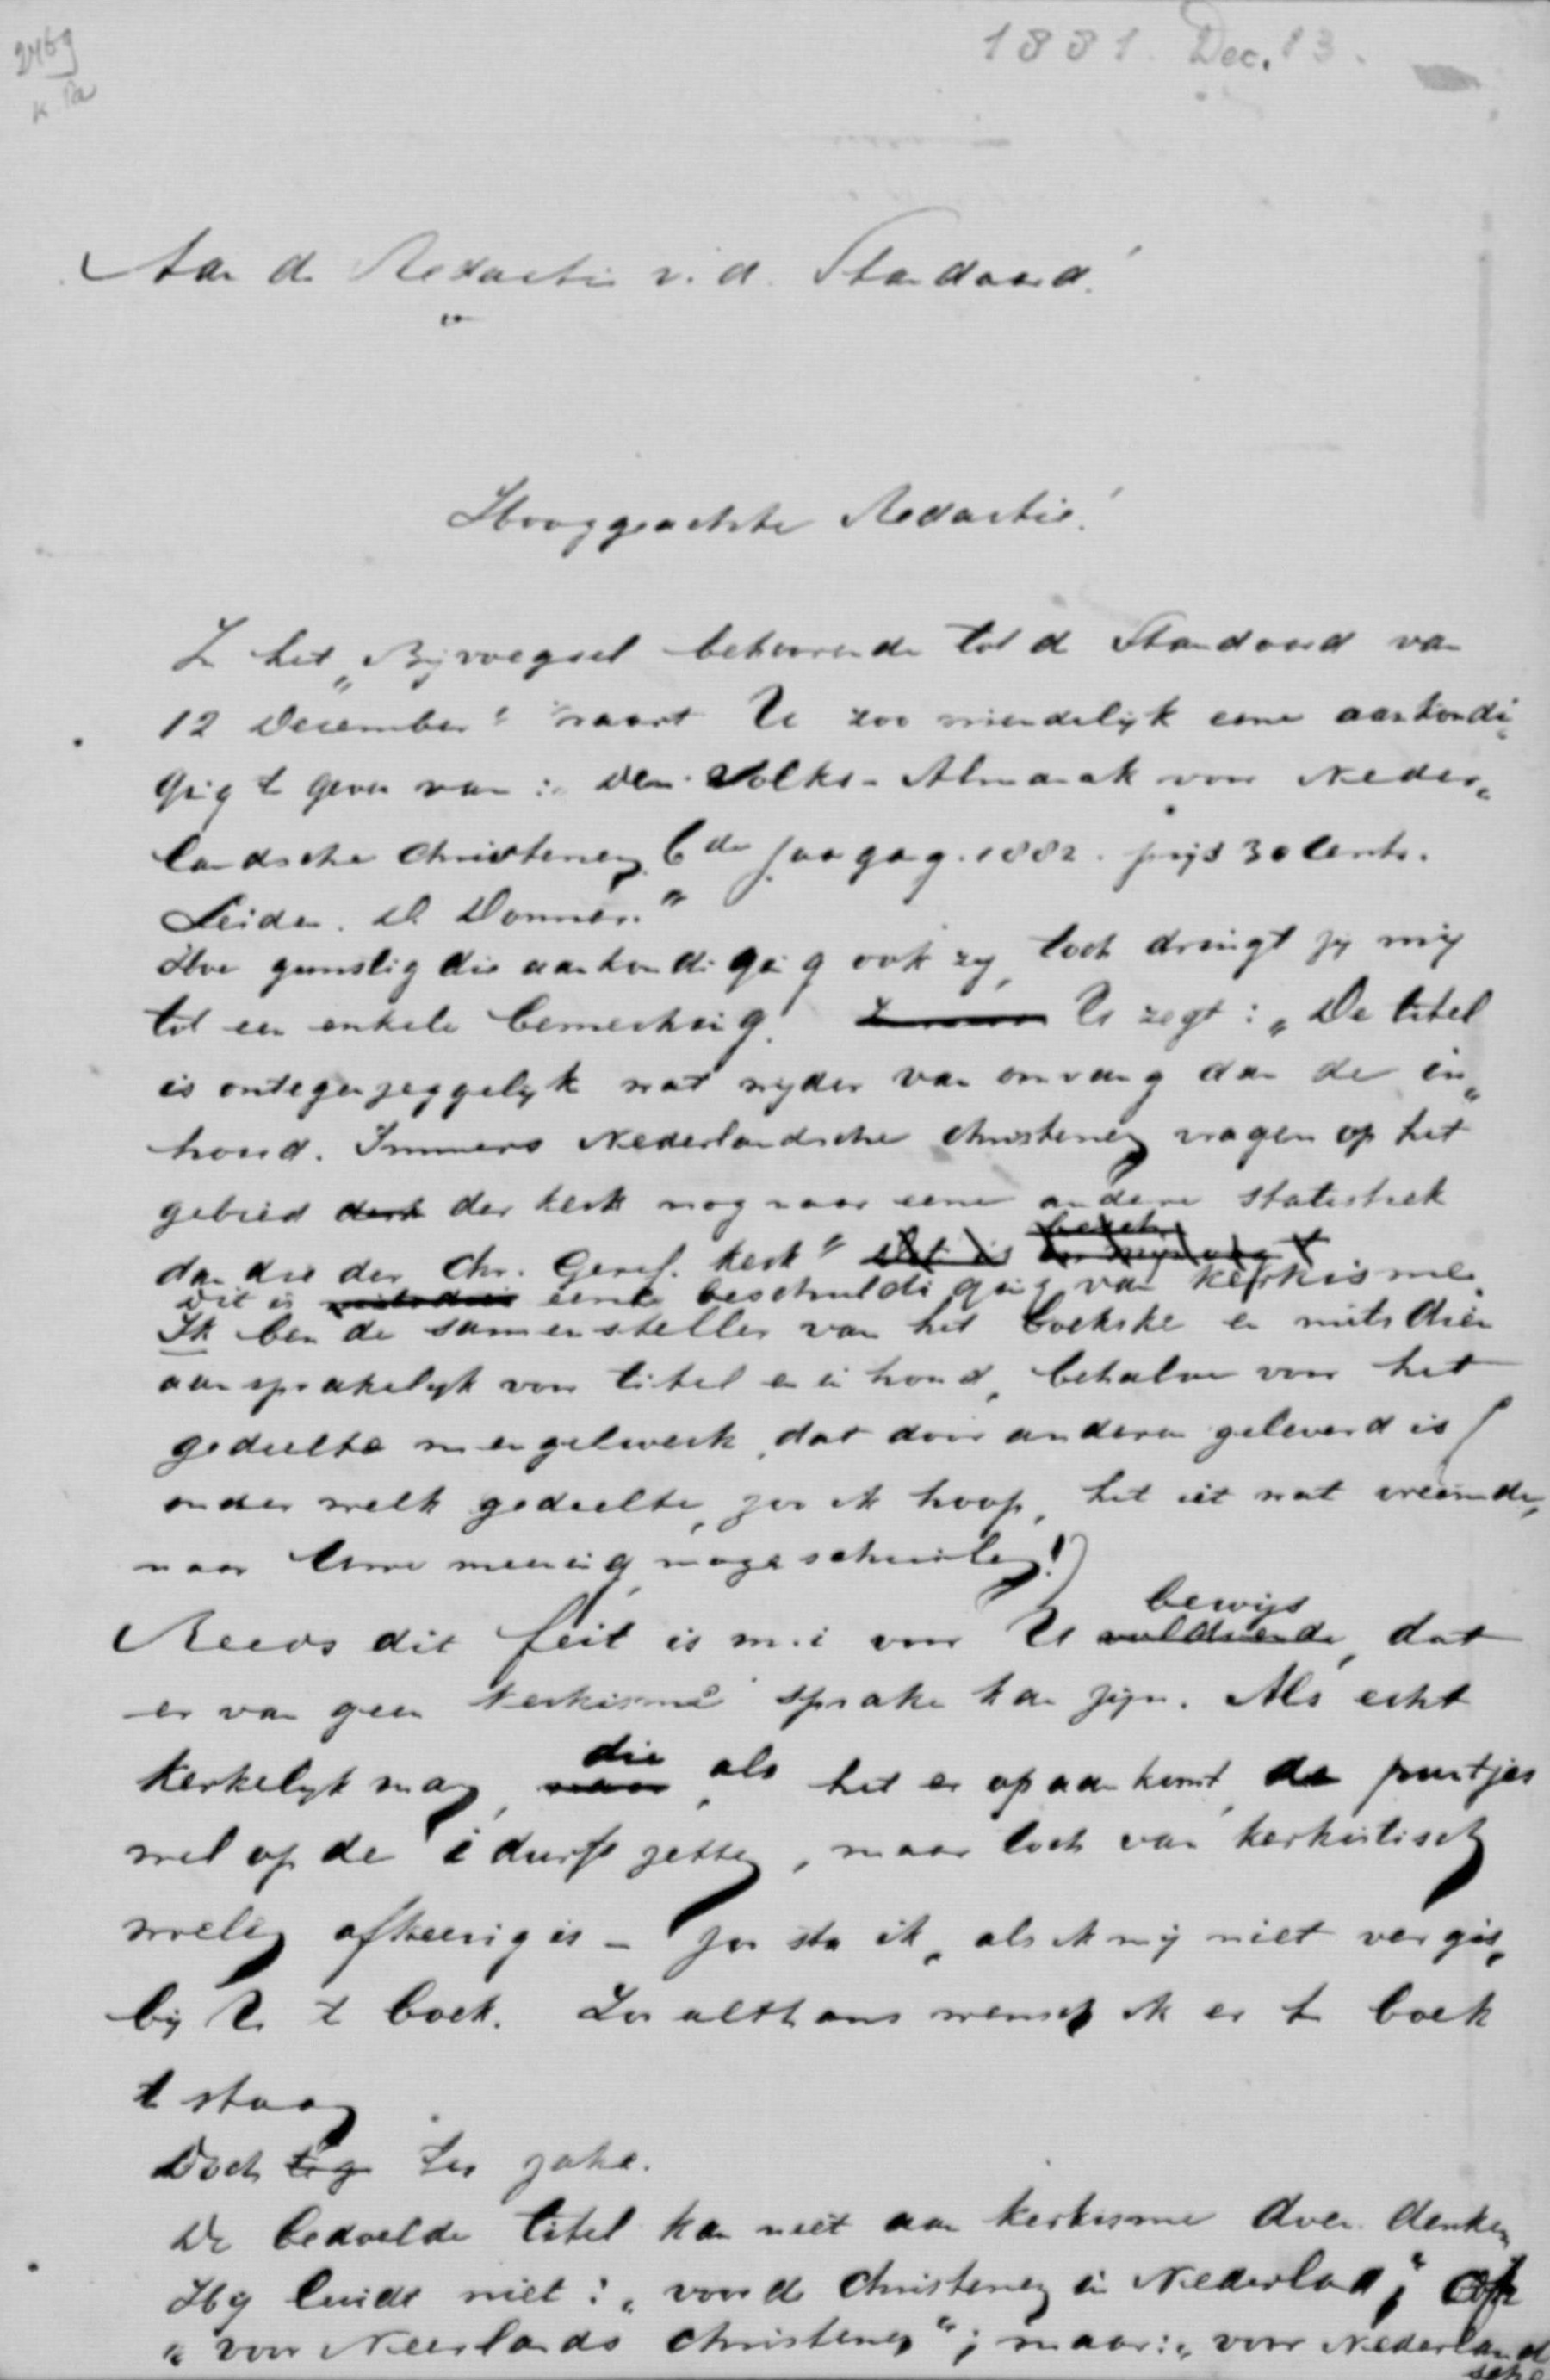 2469
1881. Dec. 13.
Aan de Redactie v. d. Standaard!
Hooggeachte Redactie!
In het „Bijvoegsel behoorende tot de Standaard van
12 December" waart U zoo vriendelijk eene aankondi„
ging te geven van: „Volks-Almanak voor Neder„
landsche Christenen 6de Jaargang. 1882. prijs 30 Cents.
Leiden. D. Donner."
Hoe gunstig die aankondiging ook zij, toch dringt zij mij
tot een enkele bemerking. U zegt: „De titel
is ontegenzeggelijk wat wijder van omvang dan de in„
houd. Immers Nederlandsche Christenen vragen op het
gebied der kerk nog naar eene andere statistiek
dan die der Chr. Geref. Kerk"
Dit is eene beschuldiging van kerkisme.
Ik ben de samensteller van het boekske en mitsdien
aansprakelijk voor titel en inhoud, behalve voor het
gedeelte mengelwerk, dat door anderen geleverd is (
onder welk gedeelte, zoo ik hoop, het iet wat vreemde,
naar Uwe meening, moge schuilen!)
Reeds dit feit is m.i voor U bewijs, dat
er van geen kerkisme sprake kan zijn. Als echt
kerkelijk man, die, als het er op aan komt, de puntjes
wel op de i durft zetten, maar toch van kerkistisch
woelen afkeerig is – zoo sta ik, als ik mij niet vergis,
bij U te boek. Zoo althans wensch ik er te boek
te staan
Doch ter zake.
De bedoelde titel kan niet aan kerkisme doen denken
Hij luidt niet: „voor de Christenen in Nederland"; Of
„voor Neerlands Christenen"; maar: „voor Nederland
sche